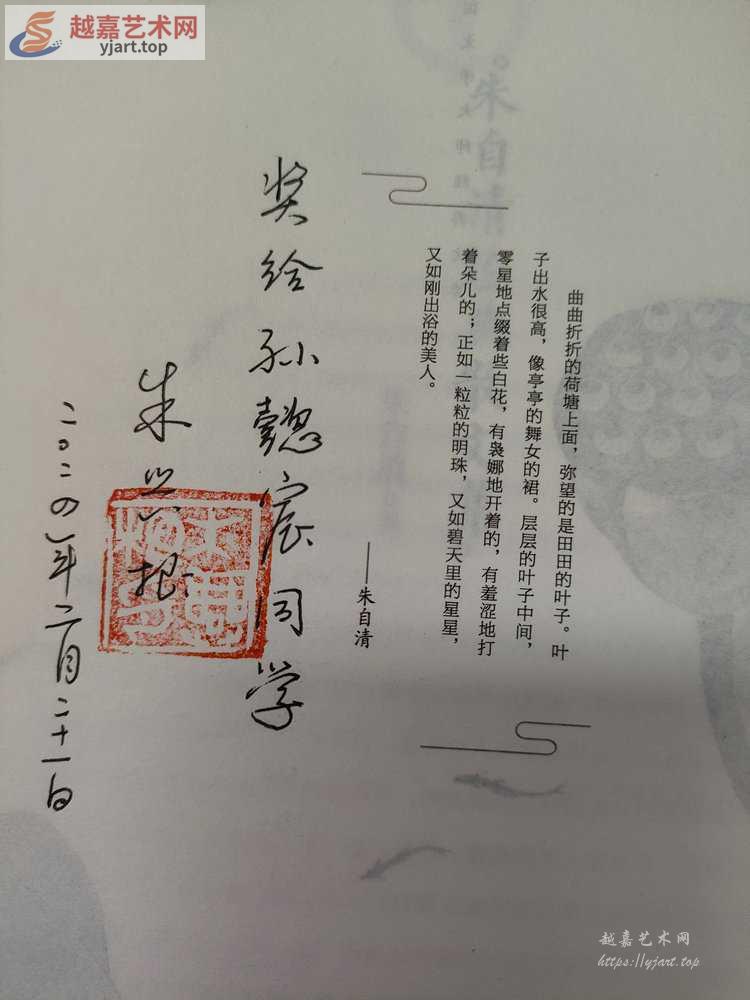 越嘉艺术网
yjart.top
曲曲折折的荷塘上面，弥望的是田田的叶子。叶
子出水很高，像亭亭的舞女的裙。层层的叶子中间，
零星地点缀着些白花，有袅娜地开着的，有羞涩地打
着朵儿的；正如一粒粒的明珠，又如碧天里的星星，
又如刚出浴的美人。
——朱自清
奖给孙懿宸同学
朱兴根
二〇二四年二月二十一日
朱自清
越嘉艺术网
https://yjart.top